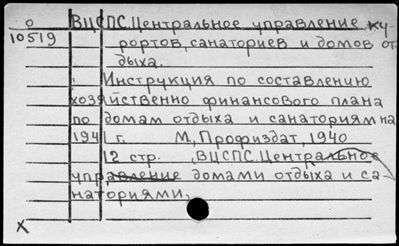 о ВЦСПС. Центральное управление ку-
10519 рортов, санаториев и домов от-
дыха.
Инструкция по составлению
хозяйственно финансового плана
по домам отдыха и санаториям на
1941 г. М., Профиздат, 1940
12 стр. , ВЦСПС. Центральное
управление домами отдыха и са-
наториями,
X